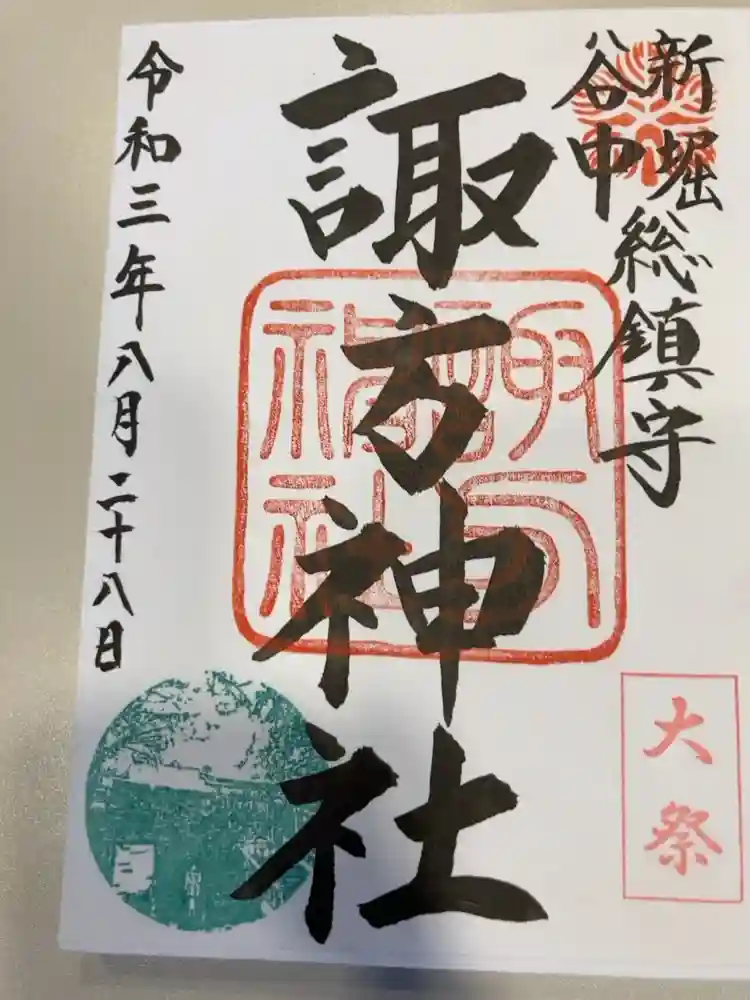 新堀
谷中
総鎮守
諏方神社
諏方
神社
令和三年八月二十八日
大祭